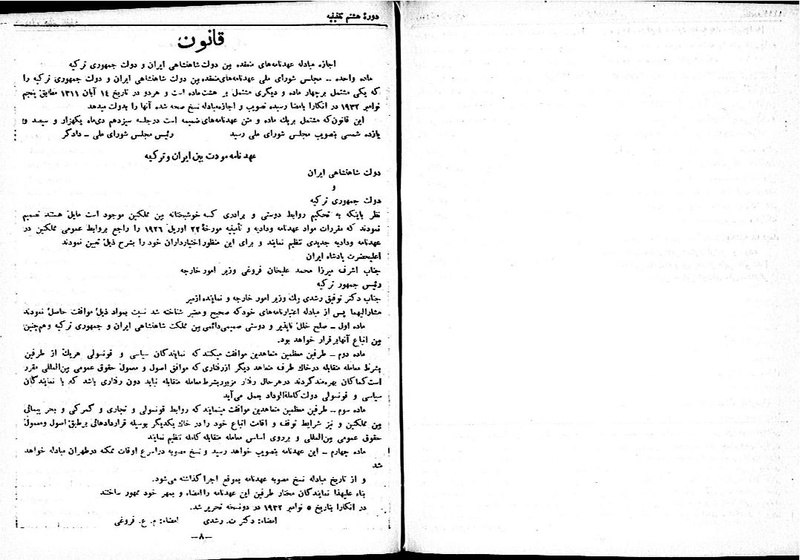 دورهٔ هشتم تقنینیه
قانون
اجازه مبادله عهدنامه‌های منعقده بین دولت شاهنشاهی ایران و دولت جمهوری ترکیه
ماده واحده ــ مجلس شورای ملی عهدنامه‌های منعقده بین دولت شاهنشاهی ایران و دولت جمهوری ترکیه را
که یکی مشتمل بر چهار ماده و دیگری مشتمل بر هشت ماده است و هر دو در تاریخ ۱۴ آبان ۱۳۱۱ مطابق پنجم
نوامبر ۱۹۳۲ در انکارا بامضا رسیده تصویب و اجازه مبادله نسخ صحه شده آنها را بدولت میدهد
این قانون که مشتمل بر یک ماده و متن عهدنامه‌های ضمیمه است در جلسه سیزدهم دی‌ماه یکهزار و سیصد و
یازده شمسی بتصویب مجلس شورای ملی رسید رئیس مجلس شورای ملی ــ دادگر
عهدنامه مودت بین ایران و ترکیه
دولت شاهنشاهی ایران
و
دولت جمهوری ترکیه
نظر باینکه به تحکیم روابط دوستی و برادری که خوشبختانه بین مملکتین موجود است مایل هستند تصمیم
نمودند که مقررات مواد عهدنامه ودادیه و تأمینیه مورخهٔ ۲۲ آوریل ۱۹۲۶ را راجع بروابط عمومی مملکتین در
عهدنامه ودادیه جدیدی تنظیم نمایند و برای این منظور اختیارداران خود را بشرح ذیل تعیین نمودند
اعلیحضرت پادشاه ایران
جناب اشرف میرزا محمد علیخان فروغی وزیر امور خارجه
رئیس جمهور ترکیه
جناب دکتر توفیق رشدی بك وزیر امور خارجه و نماینده ازمیر
مشارالیهما پس از مبادله اعتبارنامه‌های خود که صحیح و معتبر شناخته شد نسبت بمواد ذیل موافقت حاصل نمودند
ماده اول ــ صلح خلل ناپذیر و دوستی صمیمی دائمی بین مملکت شاهنشاهی ایران و جمهوری ترکیه و همچنین
بین اتباع آنها برقرار خواهد بود.
ماده دوم ــ طرفین معظمین متعاهدین موافقت میکنند که نمایندگان سیاسی و قونسولی هر یك از طرفین
بشرط معامله متقابله در خاك طرف متعاهد دیگر از رفتاری که موافق اصول و معمول حقوق عمومی بین‌المللی مقرر
است کماکان بهره‌مند گردند در هر حال رفتار مزبور بشرط معامله متقابله نباید دون رفتاری باشد که با نمایندگان
سیاسی و قونسولی دولت کاملةالوداد بعمل می‌آید
ماده سوم ــ طرفین معظمین متعاهدین موافقت مینمایند که روابط قونسولی و تجاری و گمرکی و بحر پیمائی
بین مملکتین و نیز شرایط توقف و اقامت اتباع خود را در خاك یکدیگر بوسیله قراردادهائی بر طبق اصول و معمول
حقوق عمومی بین‌المللی و بر روی اساس معامله متقابله کامله تنظیم نمایند
ماده چهارم ــ این عهدنامه بتصویب خواهد رسید و نسخ مصوبه در اسرع اوقات ممکنه در طهران مبادله خواهد
شد
و از تاریخ مبادله نسخ مصوبه عهدنامه بموقع اجرا گذاشته می‌شود.
بناء علیهذا نمایندگان مختار طرفین این عهدنامه را امضاء و بمهر خود ممهور ساختند
در انکارا بتاریخ ۵ نوامبر ۱۹۳۲ در دو نسخه تحریر شد.
امضاء: دکتر ت. رشدی امضاء: م. ع. فروغی
ــ۸ــ